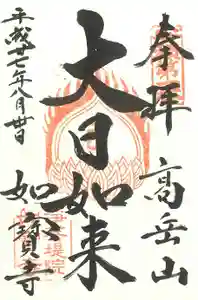 奉拝
高岳山
大日如来
如寶寺
平成廿七年八月廿日